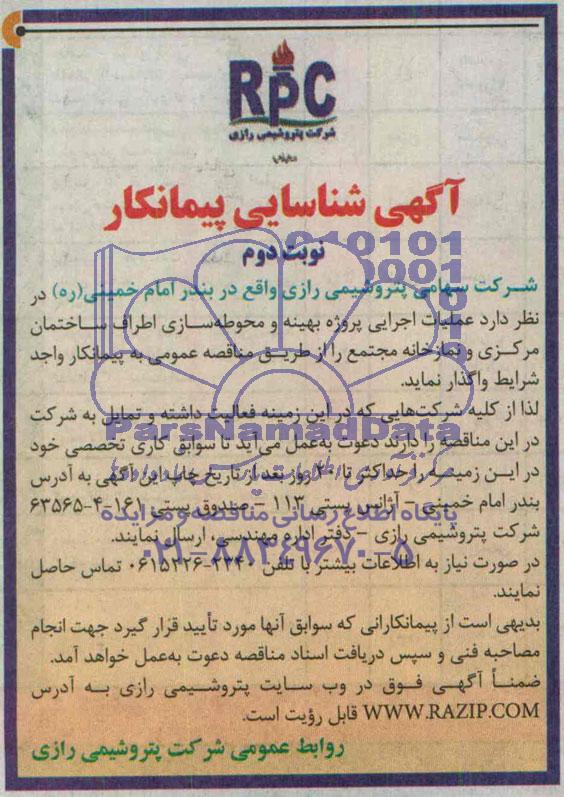 RPC
شرکت پتروشیمی رازی
آگهی شناسایی پیمانکار
نوبت دوم
شرکت سهامی پتروشیمی رازی واقع در بندر امام خمینی(ره) در
نظر دارد عملیات اجرایی پروژه بهینه و محوطه‌سازی اطراف ساختمان
مرکزی و نمازخانه مجتمع را از طریق مناقصه عمومی به پیمانکار واجد
شرایط واگذار نماید.
لذا از کلیه شرکت‌هایی که در این زمینه فعالیت داشته و تمایل به شرکت
در این مناقصه را دارند دعوت به‌عمل می‌آید تا سوابق کاری تخصصی خود
در این زمینه را حداکثر تا ۲۰ روز بعد از تاریخ چاپ این آگهی به آدرس
بندر امام خمینی - آژانس پستی ۱۱۳ - صندوق پستی ۱۶۱-۴-۶۳۵۶۵
شرکت پتروشیمی رازی - دفتر اداره مهندسی، ارسال نمایند.
در صورت نیاز به اطلاعات بیشتر با تلفن ۲۳۴۰-۰۶۱۵۲۲۶ تماس حاصل
نمایند.
بدیهی است از پیمانکارانی که سوابق آنها مورد تأیید قرار گیرد جهت انجام
مصاحبه فنی و سپس دریافت اسناد مناقصه دعوت به‌عمل خواهد آمد.
ضمناً آگهی فوق در وب سایت پتروشیمی رازی به آدرس
WWW.RAZIP.COM قابل رؤیت است.
روابط عمومی شرکت پتروشیمی رازی
ParsNamadData
پایگاه اطلاع رسانی مناقصه و مزایده
۰۲۱-۸۸۳۴۹۶۷۰-۵